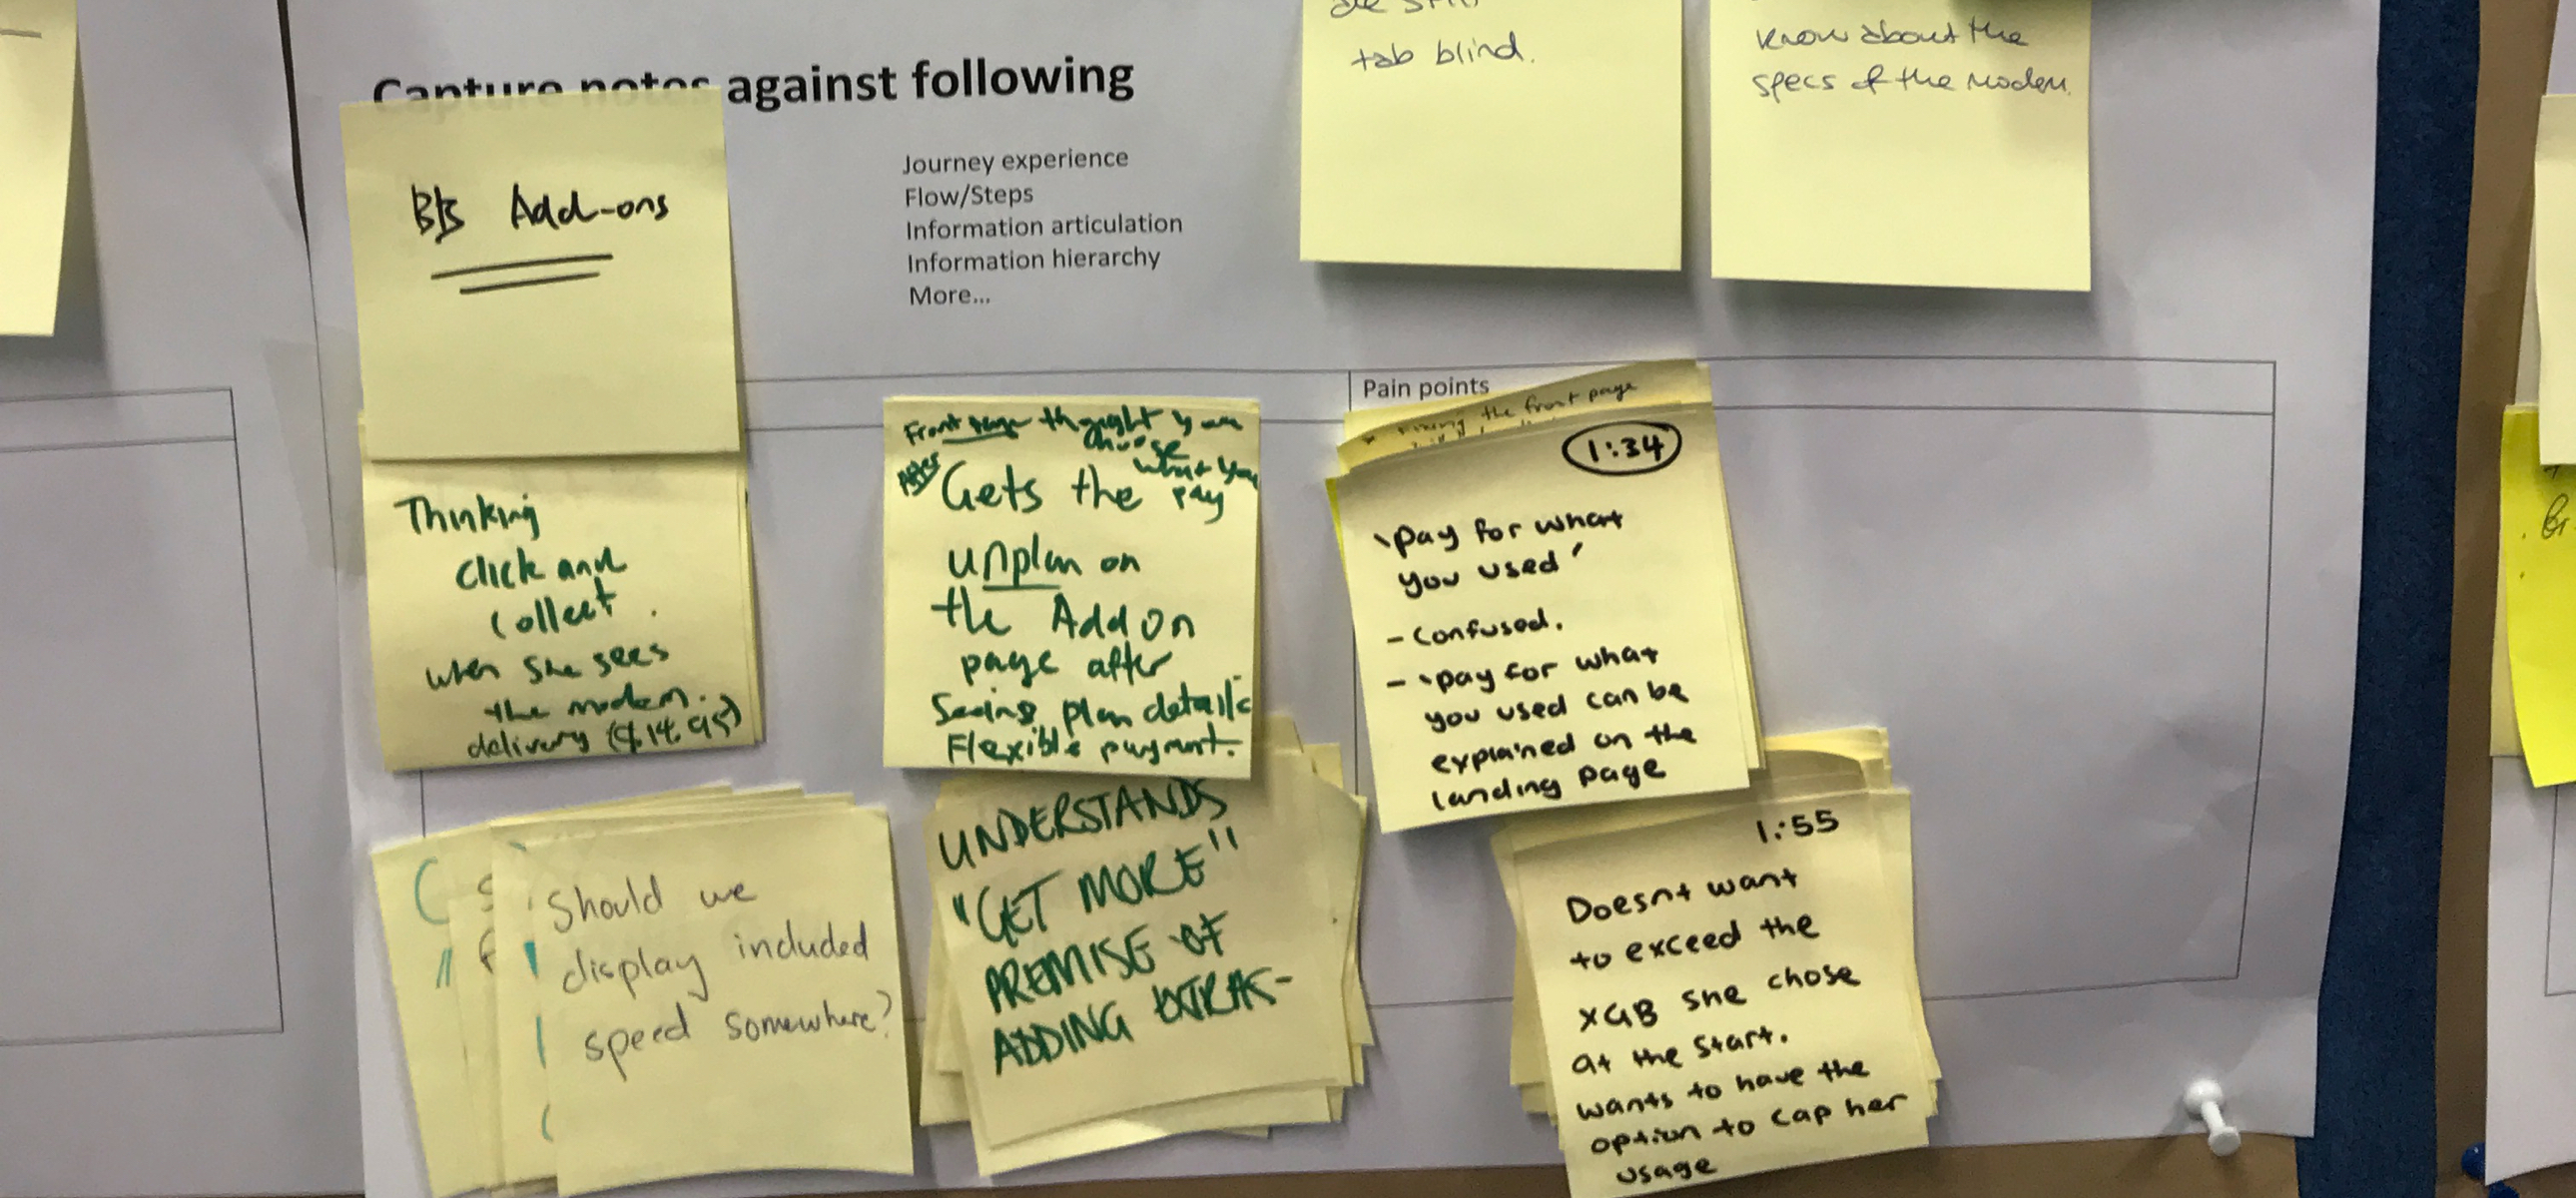 tab blind.
know about the
specs of the modem.
Capture notes against following
Journey experience
Flow/Steps
Information articulation
Information hierarchy
More...
BB Add-ons
Pain points
the front page
Front page thought you
choose
what you
pay
After
Gets the
unplan on
the Add on
page after
Seeing plan details
Flexible payment.
Thinking
click and
collect.
when she sees
the modem.
delivery ($14.95)
1:34
'pay for what
you used'
- Confused.
- 'pay for what
you used can be
explained on the
landing page
Should we
display included
speed somewhere?
UNDERSTANDS
"GET MORE"
PREMISE OF
ADDING EXTRAS-
1:55
Doesnt want
to exceed the
XGB she chose
at the start.
wants to have the
option to cap her
usage